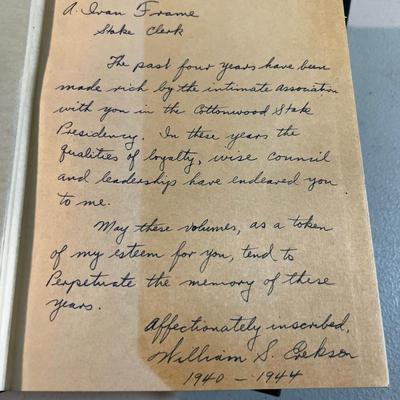 A. Ivan Frame
Stake Clerk
The past four years have been
made rich by the intimate association
with you in the Cottonwood Stake
Presidency. In these years the
qualities of loyalty, wise council
and leadership have endeared you
to me.
May these volumes, as a token
of my esteem for you, tend to
Perpetuate the memory of these
years.
Affectionately inscribed,
William S. Erekson
1940 - 1944